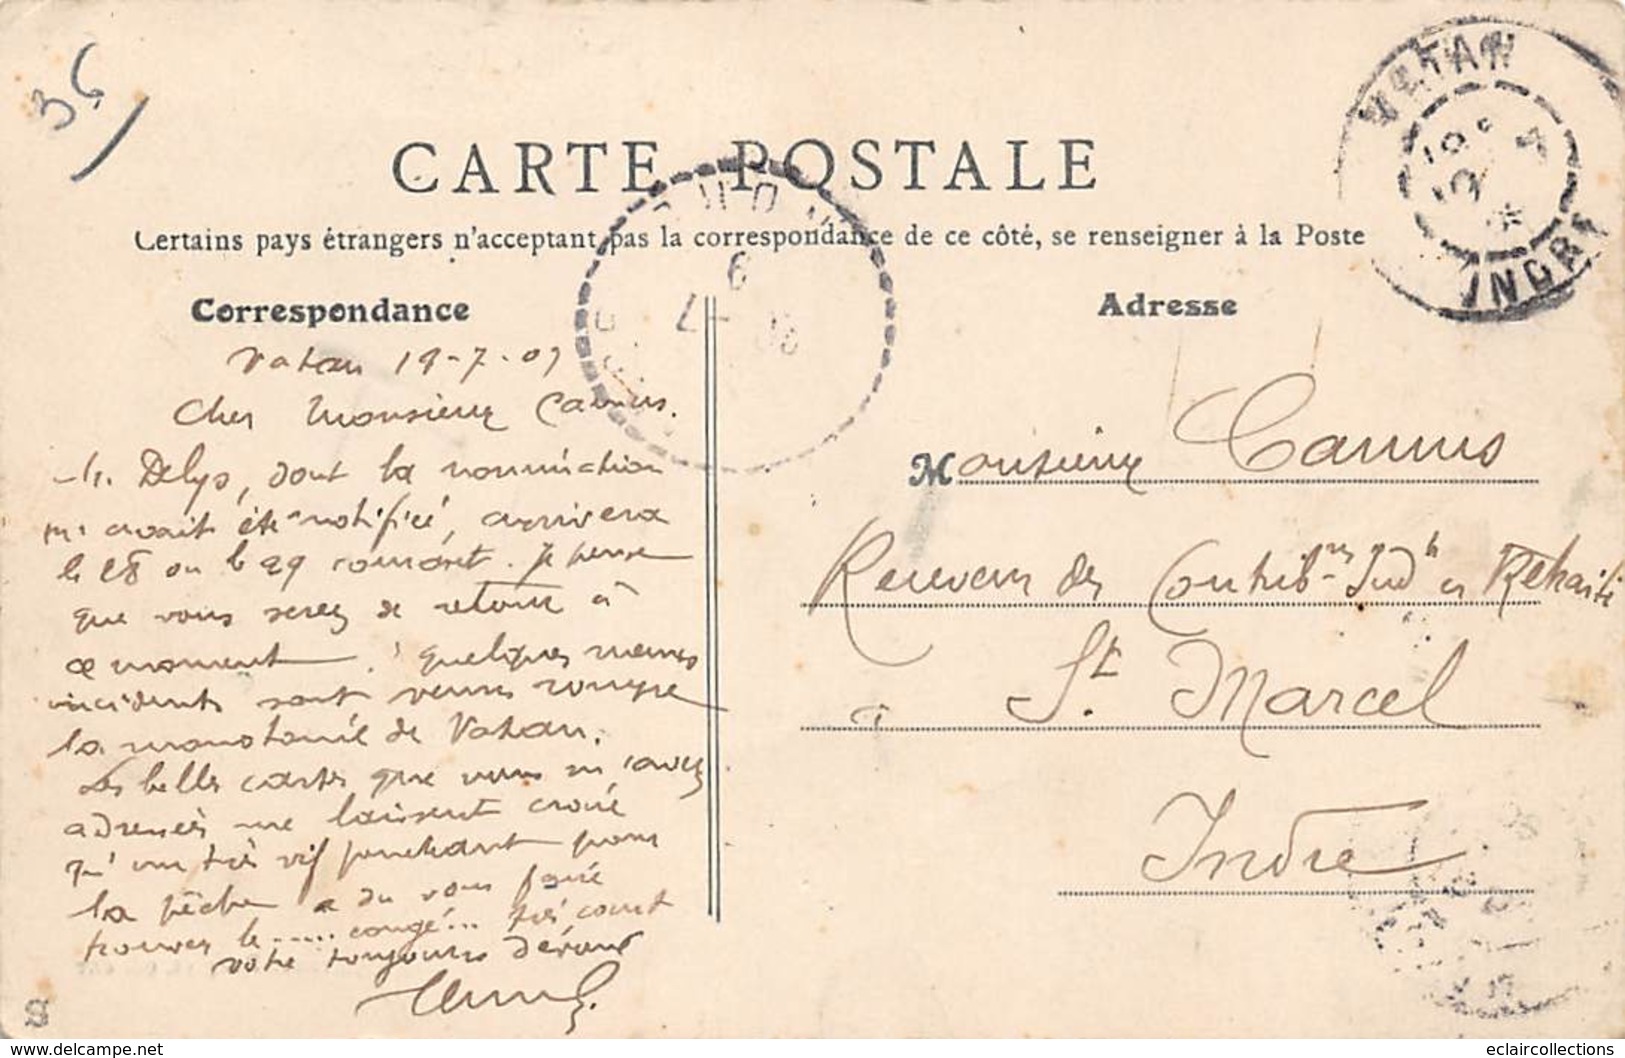 36
CARTE POSTALE
Certains pays étrangers n'acceptant pas la correspondance de ce côté, se renseigner à la Poste
VATAN
INDRE
Correspondance
Vatan 19-7-09
Cher Monsieur Camus.
M. Delys, dont la nomination
m'avait été notifiée, arrivera
le 28 ou le 29 courant. Je pense
que vous serez de retour à
ce moment. Quelques menus
incidents sont venus rompre
la monotonie de Vatan.
Les belles cartes que vous m'avez
adressées me laissent croire
qu'un très vif penchant pour
la pêche a du vous faire
trouver le ..... congé... très court
votre toujours dévoué
Adresse
Monsieur Camus
Receveur des Contrib.res Ind.tes en Retraite
à St. Marcel
Indre
eclaircollections
www.delcampe.net